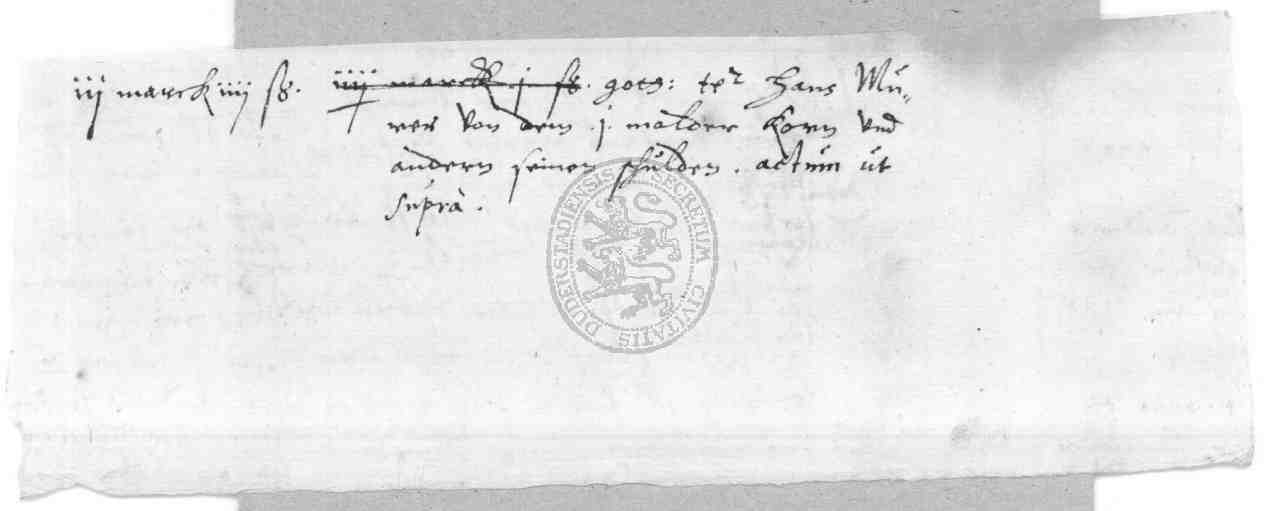 iij marck iiij ß. iiij marck j ß. gotg: ter Hans Mu=
rer von dem .j. malder korn vnd
andern seinen schulden. actum ut
supra.
SECRETUM CIVITATIS DUDERSTADIENSIS